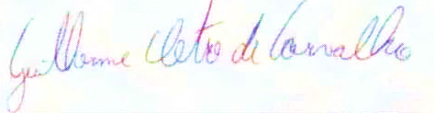 Guilherme Cletro de Carvalho